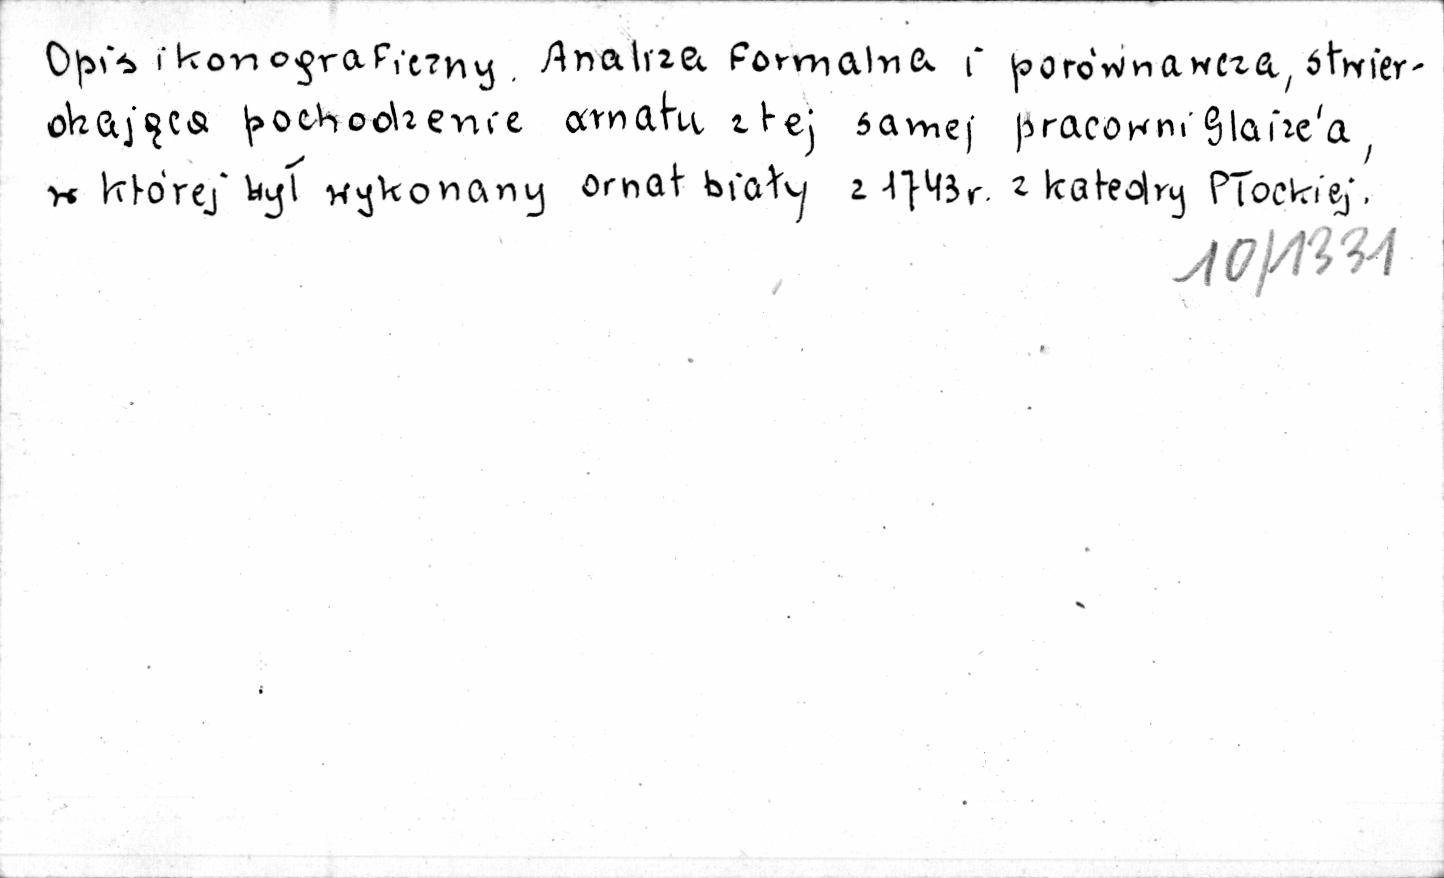 Opis ikonograficzny. Analiza formalna i porównawcza, stwier-
dzająca pochodzenie arnatu z tej samej pracowni Glaize'a,
w której był wykonany ornat biały z 1743 r. z katedry Płockiej.
10/1331